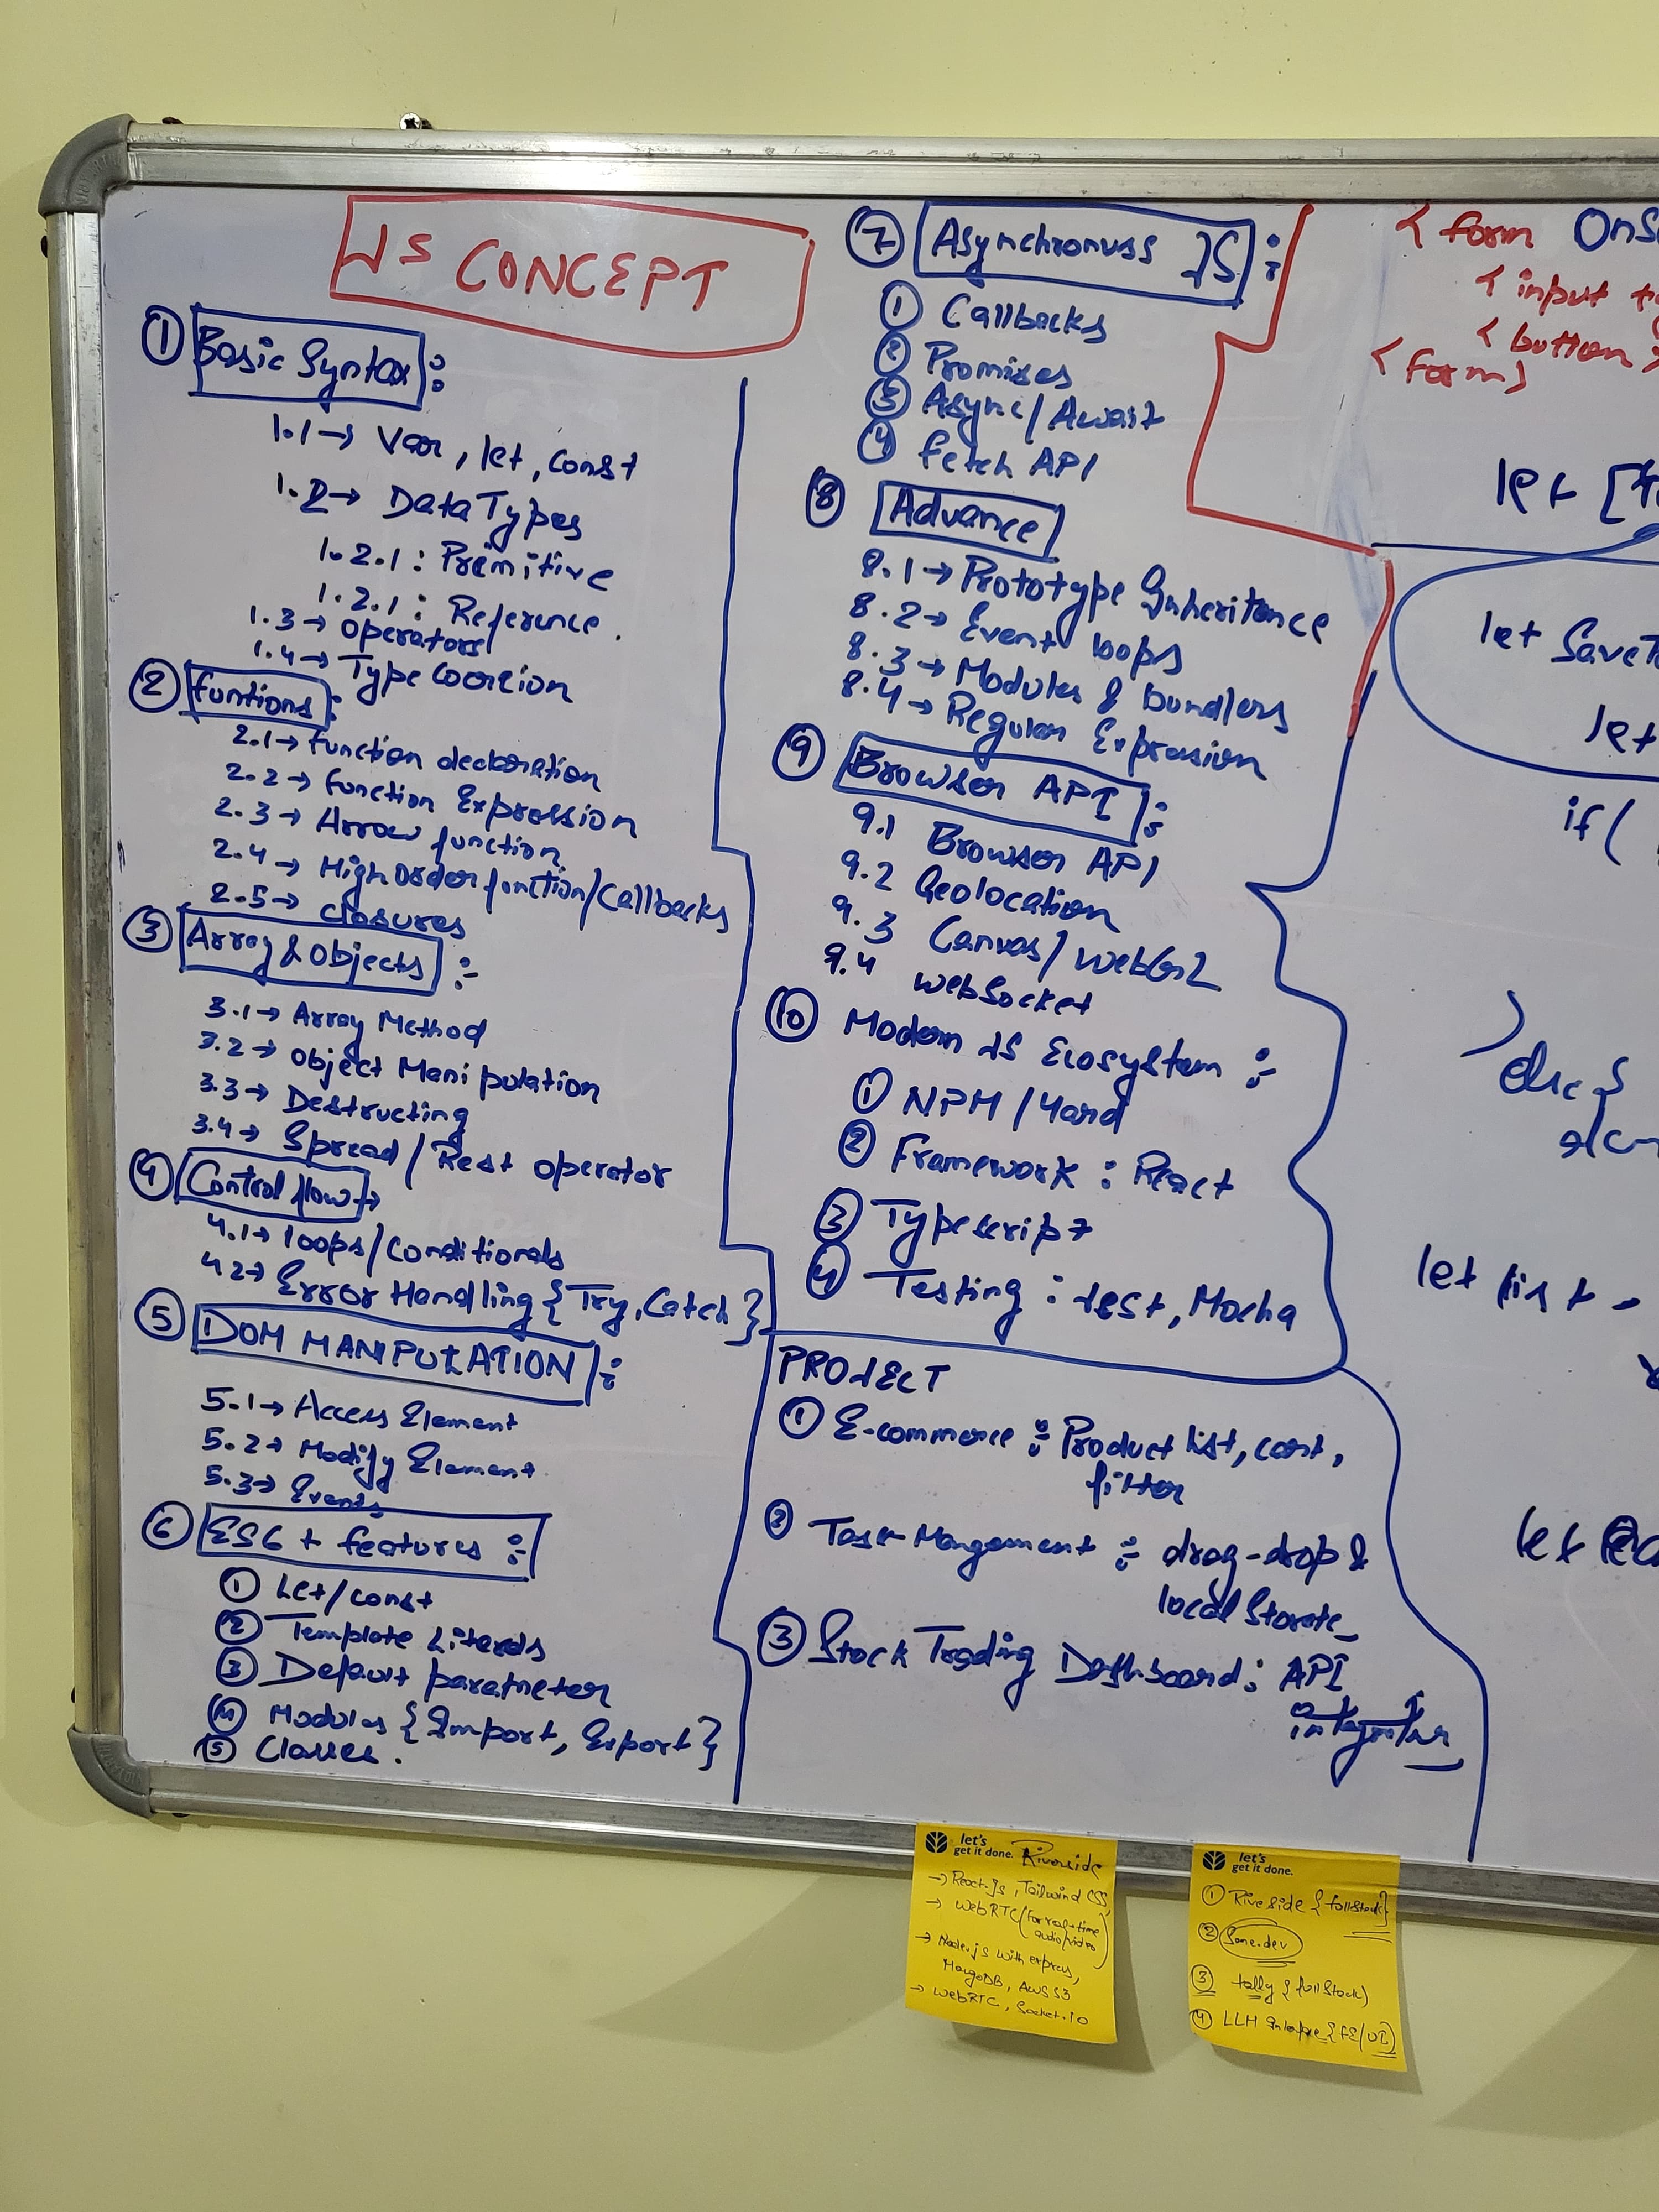 JS CONCEPT
① Basic Syntax :
1.1 → Var, let, const
1.2 → DataTypes
1.2.1 : Primitive
1.2.1 : Reference.
1.3 → Operators
1.4 → Type Coercion
② funtions :
2.1 → function declaration
2.2 → function Expression
2.3 → Arrow function
2.4 → High order function/Callbacks
2.5 → closures
③ Array & Objects :-
3.1 → Array Method
3.2 → Object Manipulation
3.3 → Destructing
3.4 → Spread / Rest operator
④ Control flow →
4.1 → loops/conditionals
4.2 → Error Handling {Try, Catch}
⑤ DOM MANIPULATION :
5.1 → Access Element
5.2 → Modify Element
5.3 → Events
⑥ ES6 + features :-
① Let/const
② Template Literals
③ Default parameter
④ Modules {Import, Export}
⑤ Classes.
⑦ Asynchronuss JS :
① Callbacks
② Promises
③ Async/Await
④ fetch API
⑧ Advance
8.1 → Prototype Inheritance
8.2 → Event loops
8.3 → Modules & bundlers
8.4 → Regular Expression
⑨ Browser API :
9.1 Browser API
9.2 Geolocation
9.3 Canvas/WebGL
9.4 WebSocket
⑩ Modern JS Ecosystem :-
① NPM /Yard
② Framework : React
③ Typescript
④ Testing : Jest, Mocha
PROJECT
① E-commerce : Product list, cart,
filter
② Task-Mangement :- drag-drop &
local Storate
③ Stock Trading Dashboard : API
< form OnS
< input
< button >
< form)
let [
let Save
let
if (
let first =
let
let's
get it done. Riverside
→ React.js, Tailwind CSS,
→ WebRTC (for real-time
audio/video)
→ Node.js with express,
MongoDB, AWS S3
→ WebRTC, Socket.io
let's
get it done.
① Riveside {fullstack}
② Same.dev
③ tally {fullStack)
④ LLM {FE/UI}